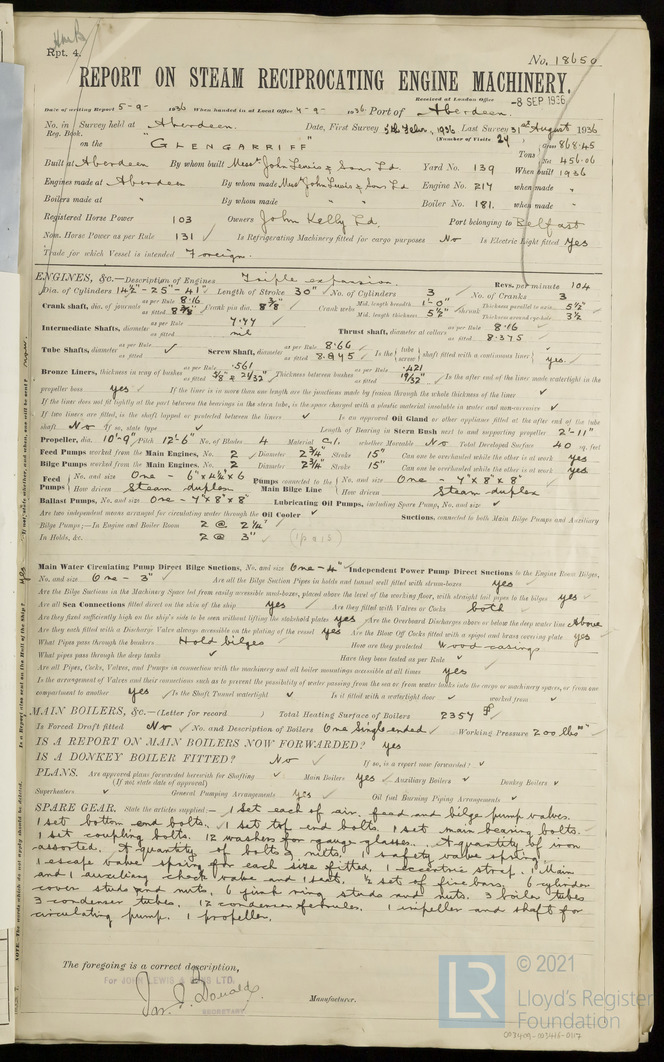 Rpt. 4.
No. 18650
REPORT ON STEAM RECIPROCATING ENGINE MACHINERY.
Received at London Office -8 SEP 1936
Date of writing Report 5-9- 1936 When handed in at Local Office 4-9- 1936 Port of Aberdeen.
No. in Survey held at Aberdeen. Date, First Survey 5th Febr., 1936 Last Survey 31st August 1936
Reg. Book. (Number of Visits 24
on the "GLENGARRIFF" Tons Gross 868.45 Net 456.06
Built at Aberdeen By whom built Messrs John Lewis & Sons Ld Yard No. 139 When built 1936
Engines made at Aberdeen By whom made Messrs John Lewis & Sons Ld Engine No. 217 when made "
Boilers made at " By whom made " " Boiler No. 181. when made "
Registered Horse Power 103 Owners John Kelly Ld. Port belonging to Belfast
Nom. Horse Power as per Rule 131 Is Refrigerating Machinery fitted for cargo purposes No Is Electric Light fitted Yes
Trade for which Vessel is intended Foreign.
ENGINES, &c.—Description of Engines Triple expansion. Revs. per minute 104
Dia. of Cylinders 14½"-25"-41" Length of Stroke 30" No. of Cylinders 3 No. of Cranks 3
Crank shaft, dia. of journals as per Rule 8.16 as fitted 8⅜" Crank pin dia. 8⅜" Crank webs Mid. length breadth 1'-0" Mid. length thickness 5½" shrunk Thickness parallel to axis 5½" Thickness around eye-hole 3½
Intermediate Shafts, diameter as per Rule 7.77 as fitted nil Thrust shaft, diameter at collars as per Rule 8.16 as fitted 8.375
Tube Shafts, diameter as per Rule as fitted Screw Shaft, diameter as per Rule 8.66 as fitted 8.995 Is the tube screw shaft fitted with a continuous liner yes.
Bronze Liners, thickness in way of bushes as per Rule .561 as fitted 5/8 & 21/32" Thickness between bushes as per Rule .421 as fitted 19/32" Is the after end of the liner made watertight in the
propeller boss yes If the liner is in more than one length are the junctions made by fusion through the whole thickness of the liner
If the liner does not fit tightly at the part between the bearings in the stern tube, is the space charged with a plastic material insoluble in water and non-corrosive
If two liners are fitted, is the shaft lapped or protected between the liners Is an approved Oil Gland or other appliance fitted at the after end of the tube
shaft No If so, state type Length of Bearing in Stern Bush next to and supporting propeller 2'-11"
Propeller, dia. 10'-9" Pitch 12'-6" No. of Blades 4 Material C.I. whether Moveable No Total Developed Surface 40 sq. feet
Feed Pumps worked from the Main Engines, No. 2 Diameter 2¾" Stroke 15" Can one be overhauled while the other is at work yes
Bilge Pumps worked from the Main Engines, No. 2 Diameter 2¾" Stroke 15" Can one be overhauled while the other is at work yes
Feed Pumps No. and size One - 6"x4½"x6 How driven Steam duplex Pumps connected to the Main Bilge Line No. and size One - 7"x8"x8" How driven Steam duplex
Ballast Pumps, No. and size One - 7"x8"x8" Lubricating Oil Pumps, including Spare Pump, No. and size
Are two independent means arranged for circulating water through the Oil Cooler Suctions, connected to both Main Bilge Pumps and Auxiliary
Bilge Pumps;—In Engine and Boiler Room 2 @ 2¼"
In Holds, &c. 2 @ 3"
Main Water Circulating Pump Direct Bilge Suctions, No. and size One-4" Independent Power Pump Direct Suctions to the Engine Room Bilges,
No. and size One - 3" Are all the Bilge Suction Pipes in holds and tunnel well fitted with strum-boxes yes
Are the Bilge Suctions in the Machinery Space led from easily accessible mud-boxes, placed above the level of the working floor, with straight tail pipes to the bilges yes
Are all Sea Connections fitted direct on the skin of the ship yes Are they fitted with Valves or Cocks both
Are they fixed sufficiently high on the ship's side to be seen without lifting the stokehold plates yes Are the Overboard Discharges above or below the deep water line Above
Are they each fitted with a Discharge Valve always accessible on the plating of the vessel yes Are the Blow Off Cocks fitted with a spigot and brass covering plate yes
What Pipes pass through the bunkers Hold bilges How are they protected Wood casings
What pipes pass through the deep tanks Have they been tested as per Rule
Are all Pipes, Cocks, Valves, and Pumps in connection with the machinery and all boiler mountings accessible at all times yes
Is the arrangement of Valves and their connections such as to prevent the possibility of water passing from the sea or from water tanks into the cargo or machinery spaces, or from one
compartment to another yes Is the Shaft Tunnel watertight Is it fitted with a watertight door worked from
MAIN BOILERS, &c.—(Letter for record ) Total Heating Surface of Boilers 2357
Is Forced Draft fitted No No. and Description of Boilers One Single ended Working Pressure 200 lbs
IS A REPORT ON MAIN BOILERS NOW FORWARDED? yes
IS A DONKEY BOILER FITTED? No If so, is a report now forwarded?
PLANS. Are approved plans forwarded herewith for Shafting Main Boilers yes Auxiliary Boilers Donkey Boilers
(If not state date of approval)
Superheaters General Pumping Arrangements yes Oil fuel Burning Piping Arrangements
SPARE GEAR. State the articles supplied:— 1 set each of air, feed and bilge pump valves.
1 set bottom end bolts. 1 set top end bolts. 1 set main bearing bolts.
1 set coupling bolts. 12 washers for gauge glasses. A quantity of iron
assorted. A quantity of bolts & nuts. 1 safety valve spring.
1 escape valve spring for each size fitted. 1 eccentric strap. 1 Main
and 1 auxiliary check valve and 1 seat. ½ set of fire bars. 6 cylinder
cover studs and nuts. 6 junk ring studs and nuts. 3 boiler tubes
3 condenser tubes. 12 condenser ferrules. 1 impeller and shaft for
circulating pump. 1 propeller.
The foregoing is a correct description,
For JOHN LEWIS & SONS LTD.
Jas. J. Donald.
SECRETARY
Manufacturer.
LR
© 2021
Lloyd's Register
Foundation